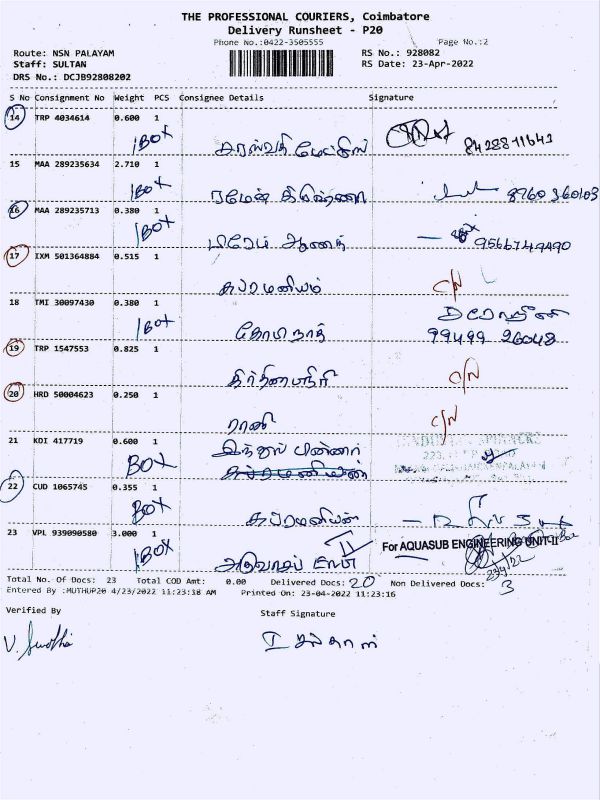 THE PROFESSIONAL COURIERS, Coimbatore
Delivery Runsheet - P20
Phone No.:0422-3505555 Page No.:2
Route: NSN PALAYAM RS No.: 928082
Staff: SULTAN RS Date: 23-Apr-2022
DRS No.: DCJB92808202
S No Consignment No Weight PCS Consignee Details Signature
14 TRP 4034614 0.600 1
1BOX 8428811641
15 MAA 289235634 2.710 1
1BOX 8760360103
16 MAA 289235713 0.380 1
1BOX பிரேம் ஆனந்த் 9566749490
17 IXM 501364884 0.515 1
சுப்ரமணியம் c/N
18 TMI 30097430 0.380 1
1BOX கோபிநாத் 99499 26048
19 TRP 1547553 0.825 1
c/N
20 HRD 50004623 0.250 1
ராணி c/N
21 KDI 417719 0.600 1
BOX
22 CUD 1065745 0.355 1
BOX சுப்ரமணியன்
23 VPL 939090580 3.000 1
1BOX II For AQUASUB ENGINEERING UNIT-II
Total No. Of Docs: 23 Total COD Amt: 0.00 Delivered Docs: 20 Non Delivered Docs: 3
Entered By :MUTHUP20 4/23/2022 11:23:18 AM Printed On: 23-04-2022 11:23:16
Verified By Staff Signature